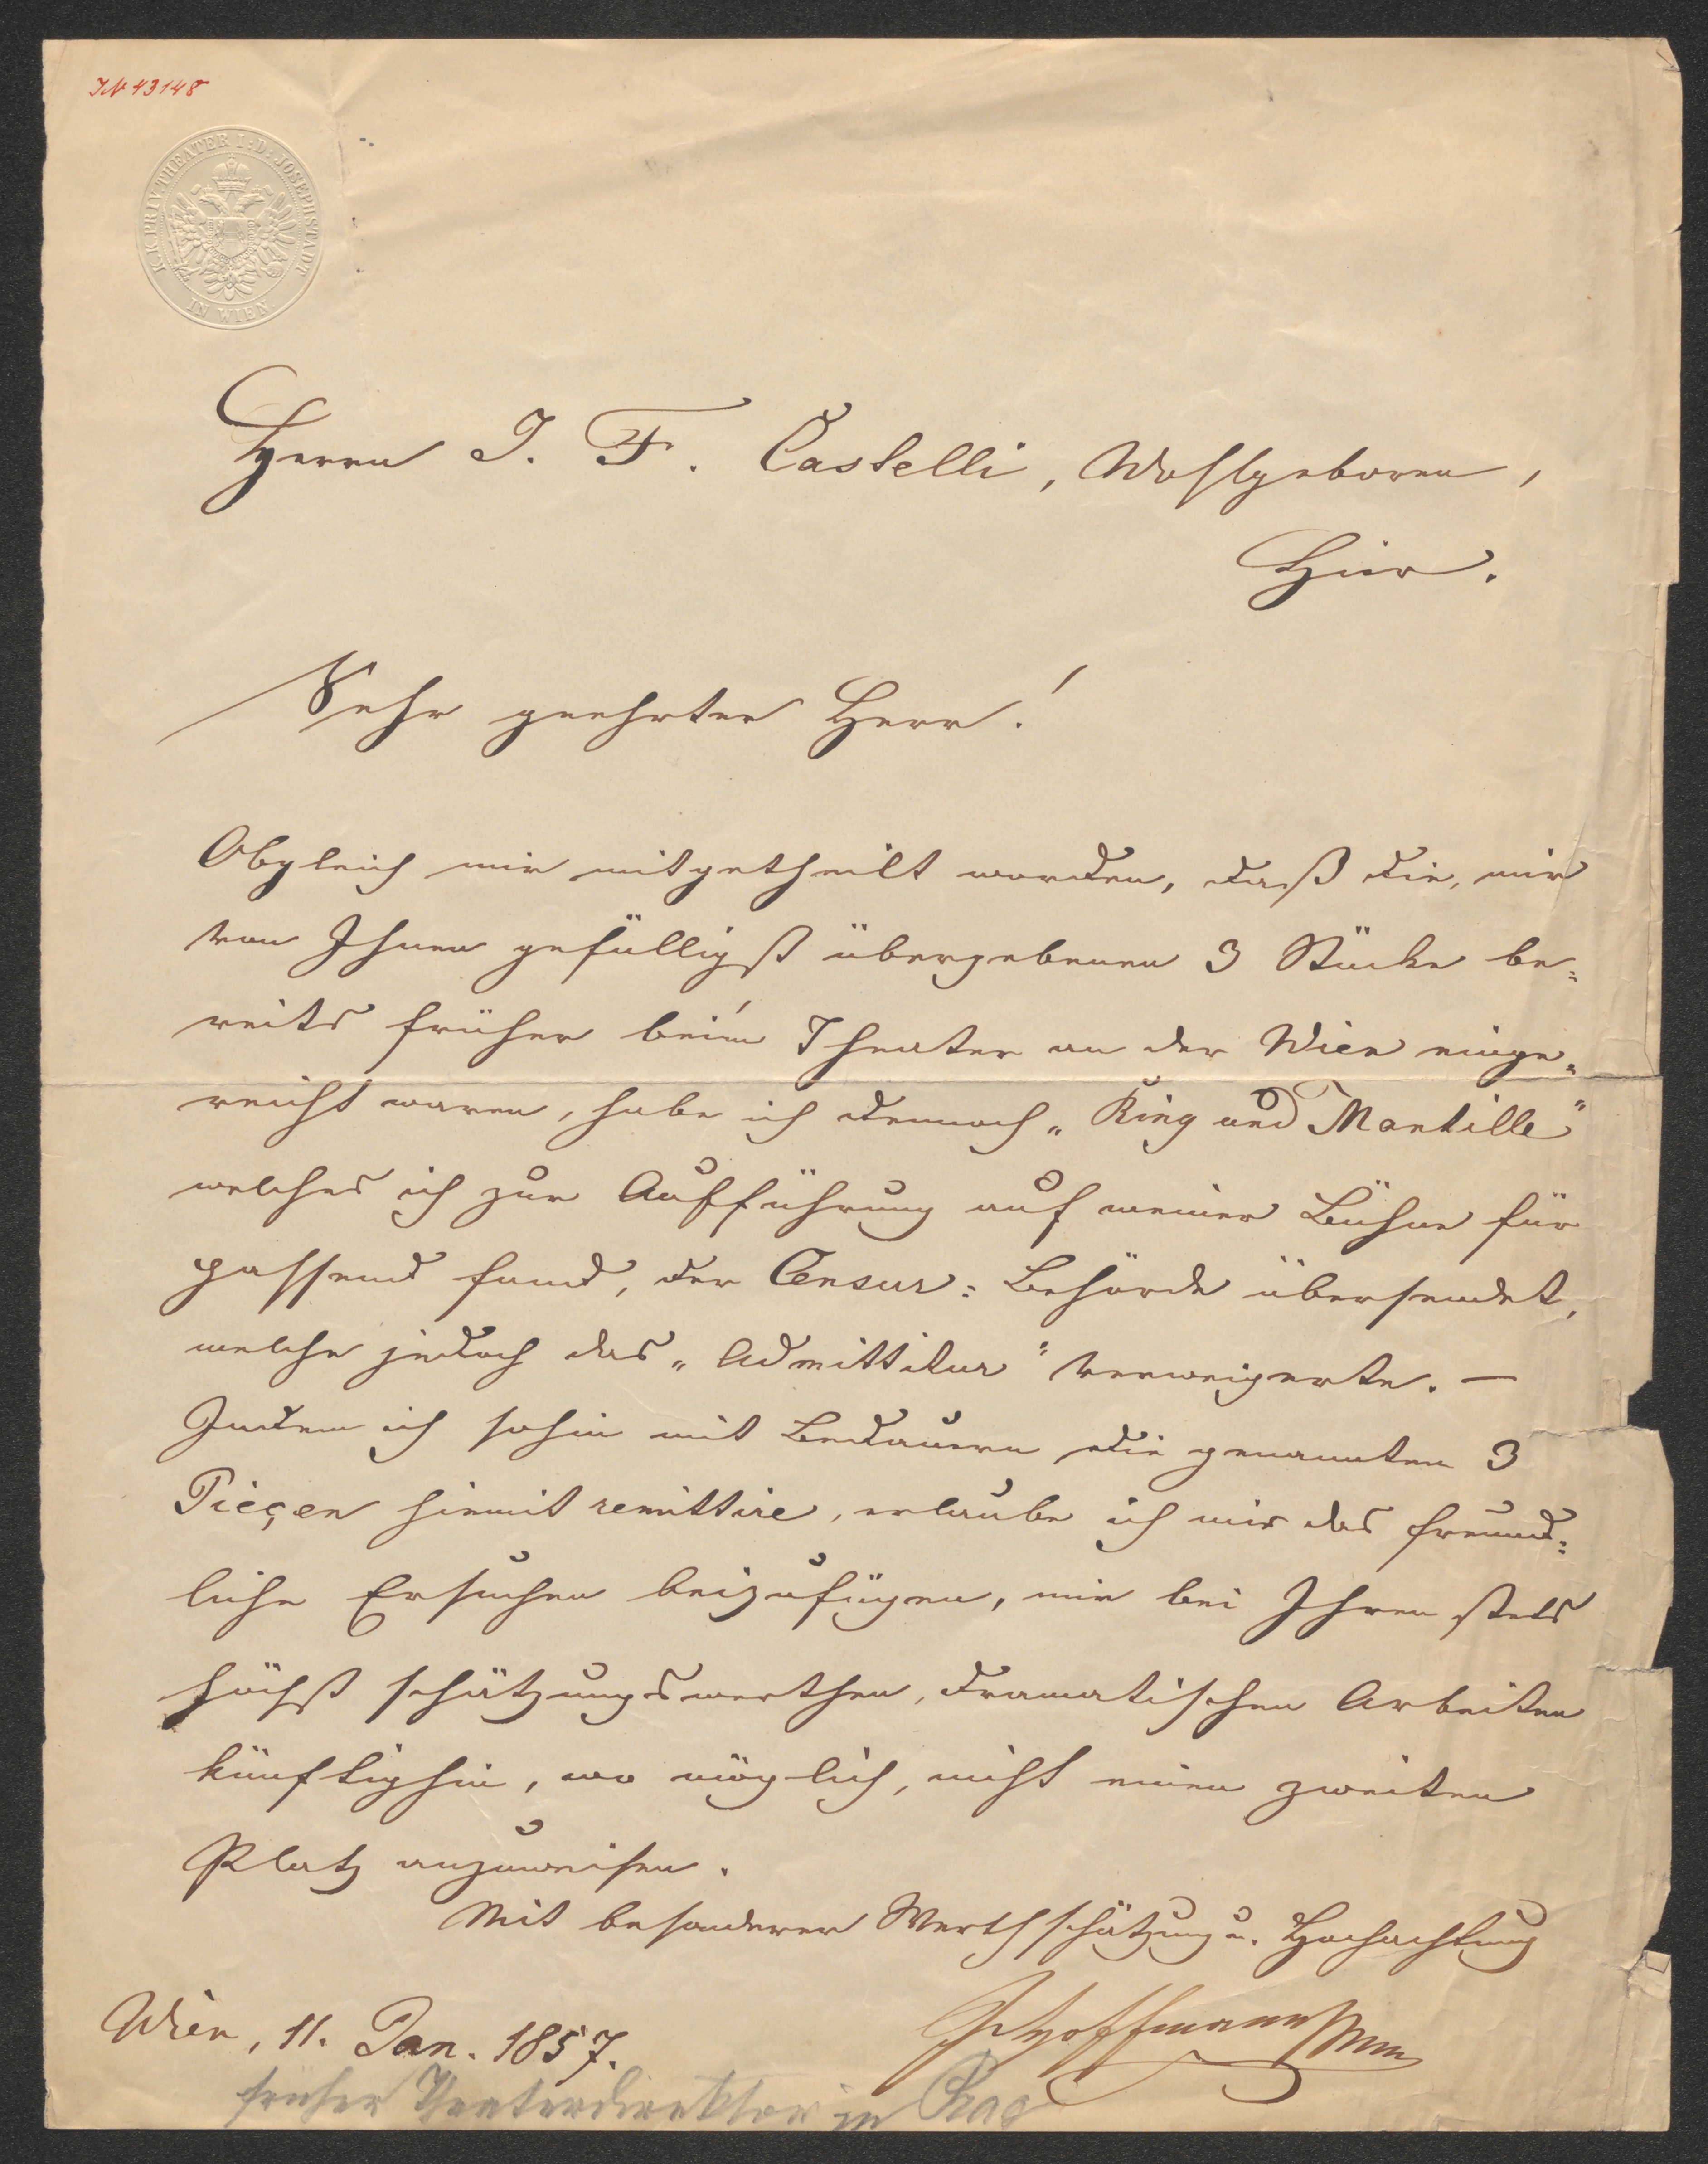 IN 43148
K.K. PRIV. THEATER I: D: JOSEPHSTADT
IN WIEN.
Herrn J. F. Castelli, Wohlgeboren,
Hier.
Sehr geehrter Herr!
Obgleich mir mitgetheilt worden, daß die, mir
von Ihnen gefälligst übergebenen 3 Stücke be=
reits früher beim Theater an der Wien einge=
reicht waren, habe ich dennoch „Ring und Mantille"
welches ich zur Aufführung auf meiner Bühne für
passend fand, der Censur=Behörde übersendet,
welche jedoch das „Admittitur" verweigerte. —
Indem ich sohin mit Bedauern die genannten 3
Pieçen hiemit remittire, erlaube ich mir das freund=
liche Ersuchen beizufügen, mir bei Ihren stets
höchst schätzungswerthen, dramatischen Arbeiten
künftighin, wo möglich, nicht einen zweiten
Platz anzuweisen.
Mit besonderer Werthschätzung u. Hochachtung
Hoffmann
Wien, 11. Jan. 1857.
früher Theaterdirektor in Prag